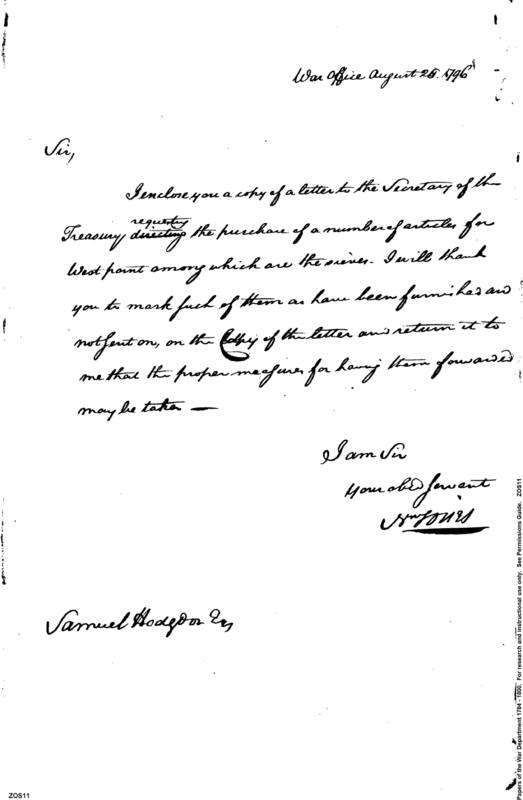 War Office August 25. 1796
Sir,
I enclose you a copy of a letter to the Secretary of the
requesting
Treasury directing the purchase of a number of articles for
West point among which are the sieves. I will thank
you to mark such of them as have been furnished and
not sent on, on the Copy of the letter and return it to
me that the proper measures for having them forwarded
may be taken —
I am Sir
your obed servant
Wm Jones
Samuel Hodgdon Esq
ZOS11
Papers of the War Department 1784 - 1800. For research and instructional use only. See Permissions Guide. ZOS11